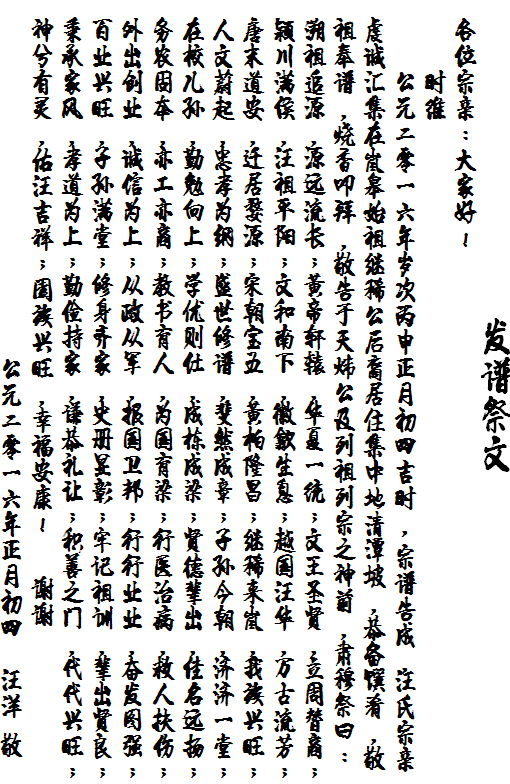 发谱祭文
各位宗亲：大家好！
时维
公元二零一六年岁次丙申正月初四吉时，宗谱告成 汪氏宗亲
虔诚汇集在岚皋始祖继稀公后裔居住集中地清潭坡，恭备馔肴，敬
祖奉谱，烧香叩拜，敬告于天炜公及列祖列宗之神前，肃穆祭曰：
朔祖追源，源远流长；黄帝轩辕，华夏一统；文王圣贤，立周替商；
颖川满侯，汪祖平阳；文和南下，徽歙生息；越国汪华，万古流芳；
唐末道安，迁居婺源；宋朝宝五，黄柏隆昌；继稀来岚，我族兴旺；
人文蔚起，忠孝为纲；盛世修谱，斐然成章；子孙今朝，济济一堂；
在校儿孙，勤勉向上；学优则仕，成栋成梁；贤德辈出，佳名远扬；
务农固本，亦工亦商；教书育人，为国育梁；行医治病，救人扶伤；
外出创业，诚信为上；从政从军，报国卫邦；行行业业，奋发图强；
百业兴旺，子孙满堂；修身齐家，史册显彰；牢记祖训，辈出贤良；
秉承家风，孝道为上；勤俭持家，谦恭礼让；积善之门，代代兴旺；
神兮有灵，佑汪吉祥；国族兴旺，幸福安康！ 谢谢
公元二零一六年正月初四 汪洋 敬